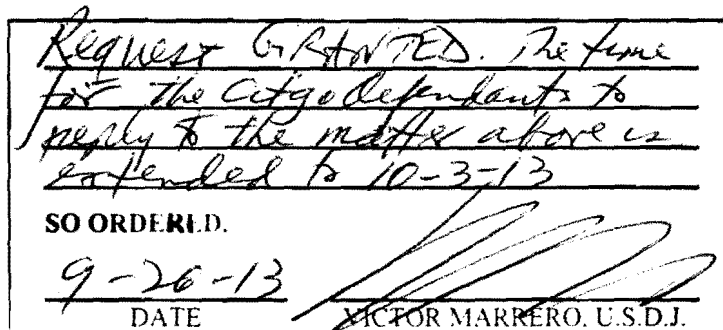 Request GRANTED. The time
for the Citgo Defendants to
reply to the matter above is
extended to 10-3-13
SO ORDERED.
9-26-13
DATE VICTOR MARRERO, U.S.D.J.